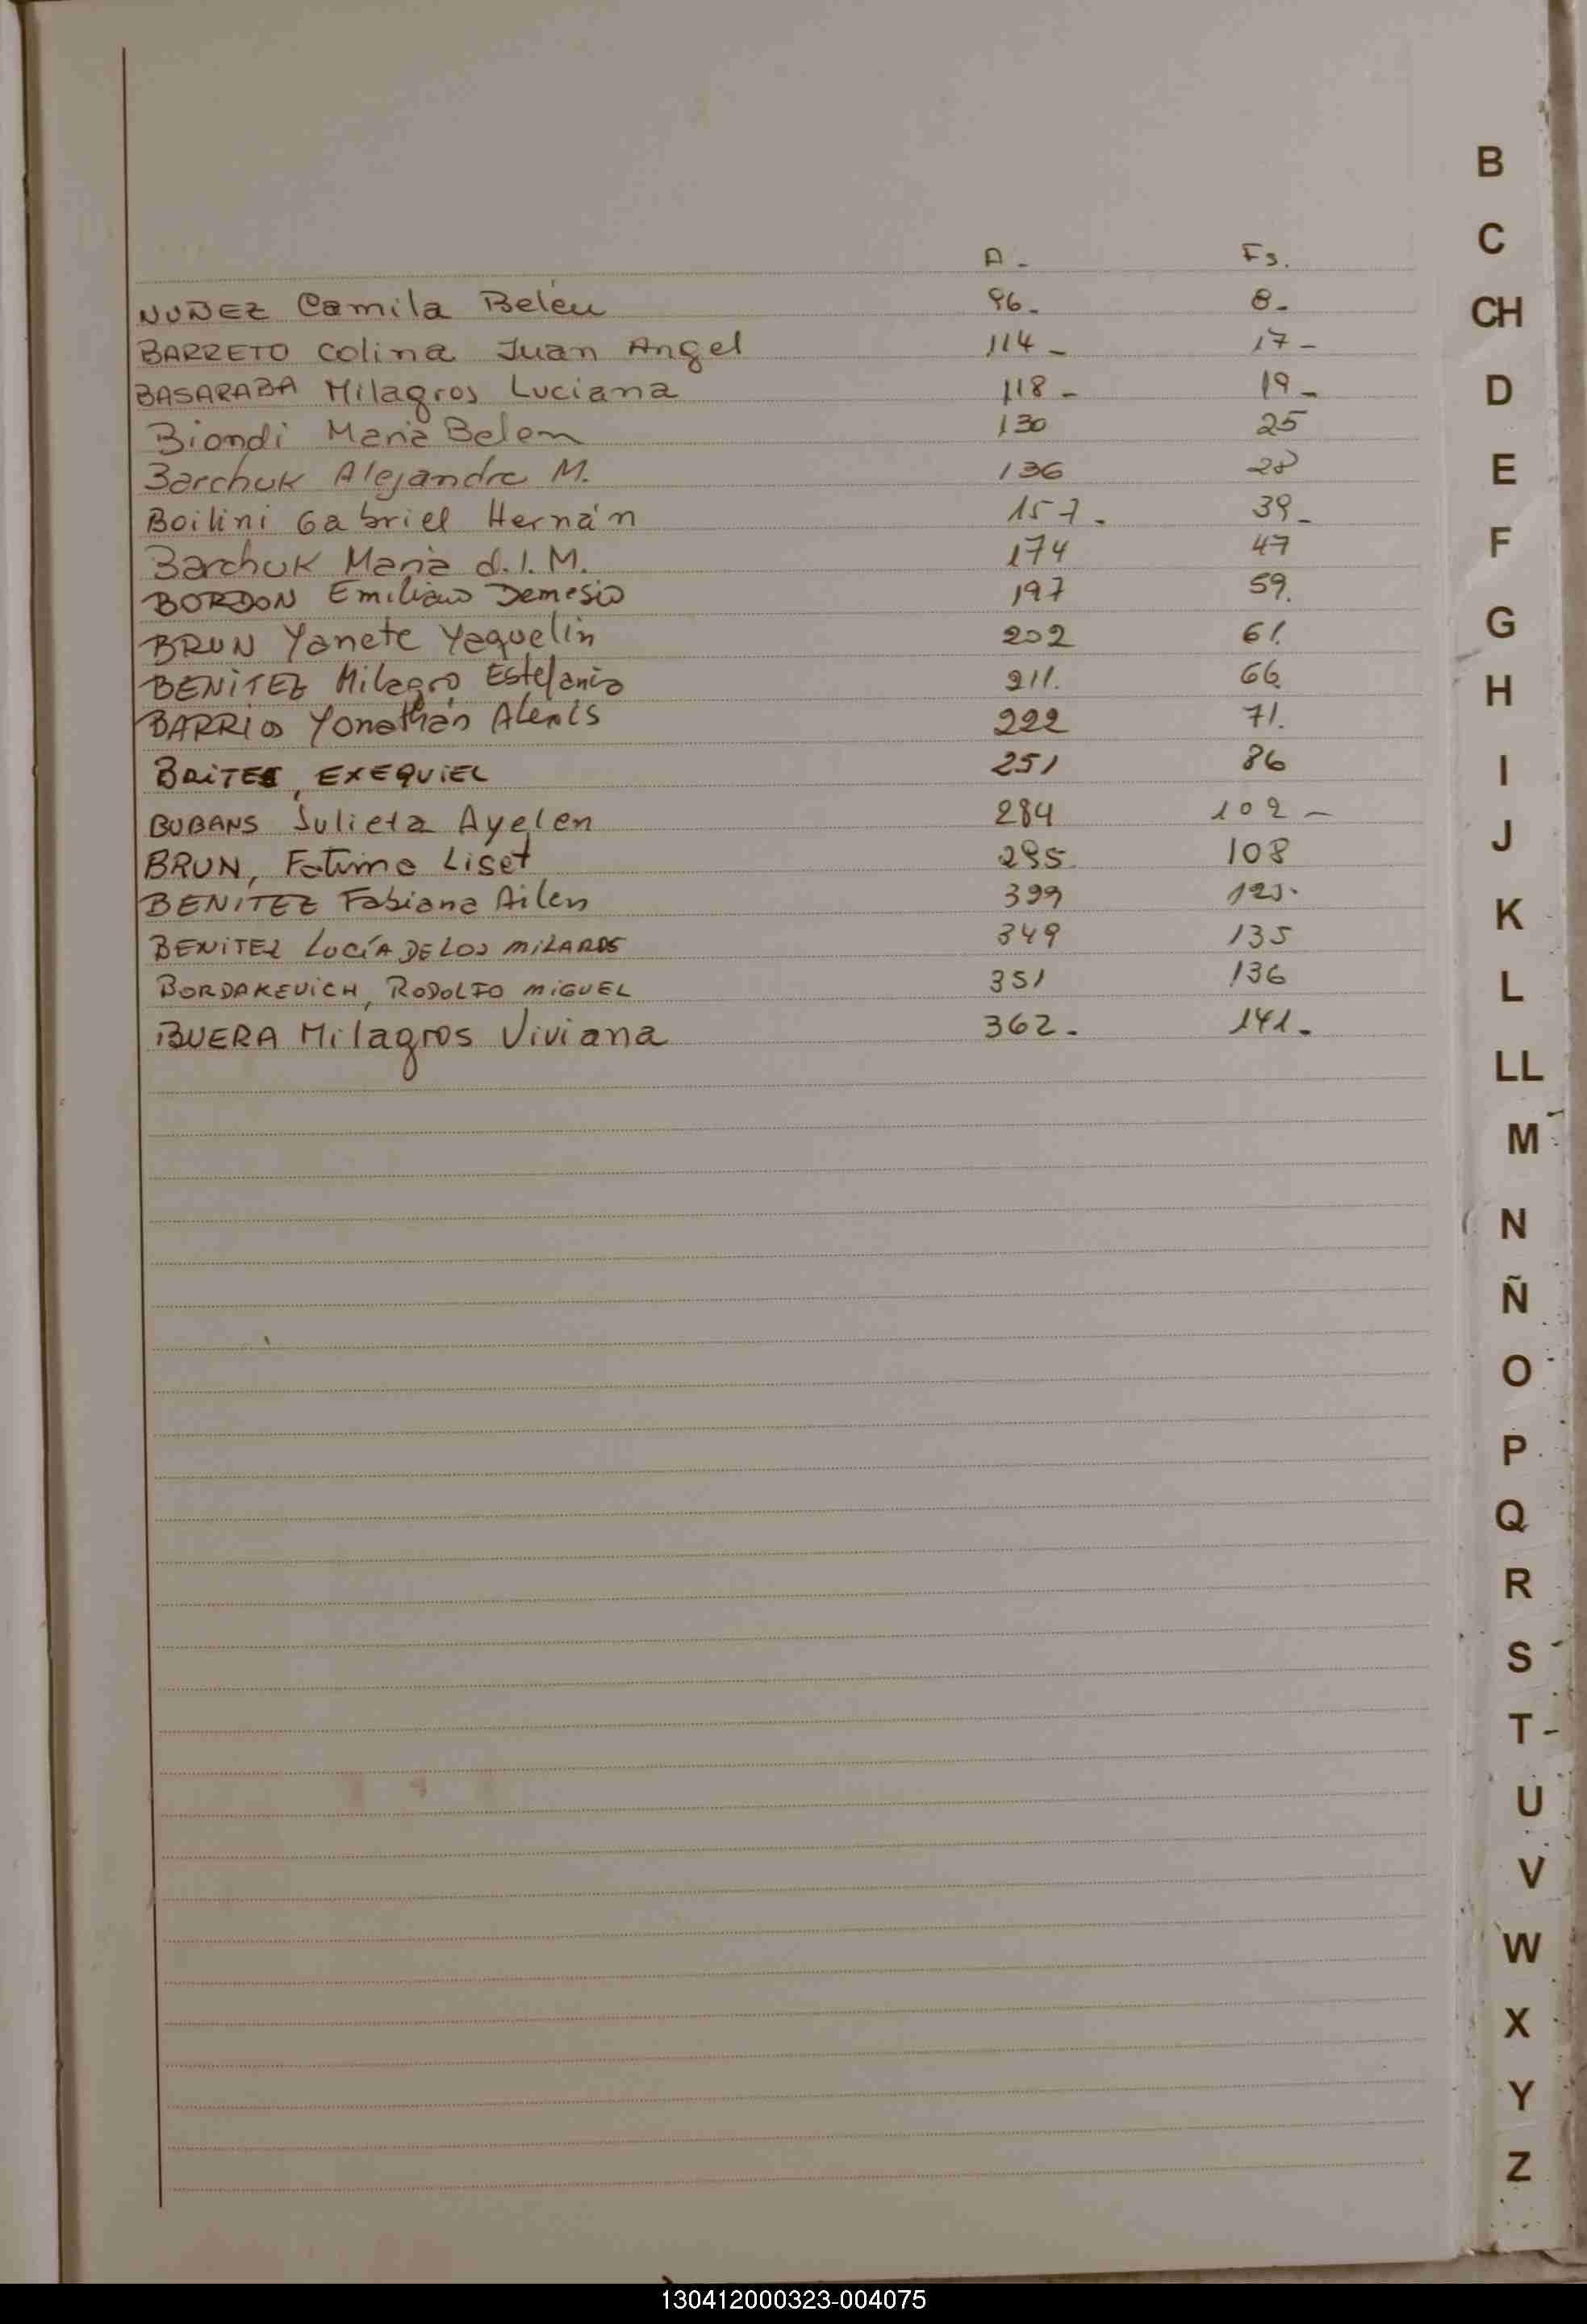 A - Fs.
NUÑEZ Camila Belén 96. 8.
BARRETO Colina Juan Angel 114 - 17 -
BASARABA Milagros Luciana 118 - 19 -
Biondi Maria Belen 130 25
Barchuk Alejandro M. 136 28
Boilini Gabriel Hernán 157. 39 -
Barchuk Maria d.l. M. 174 47
BORDON Emiliano Demesio 197 59.
BRUN Yanete Yaquelin 202 61.
BENITEZ Milagro Estefania 211. 66
BARRIOS Yonathán Alexis 222 71.
BRITES, EXEQUIEL 251 86
BUBANS Julieta Ayelen 284 102 -
BRUN, Fatima Liset 295 108
BENITEZ Fabiana Ailen 399
BENITEZ LUCÍA DE LOS MILAROS 349 135
BORDAKEVICH, RODOLFO MIGUEL 351 136
BUERA Milagros Viviana 362. 141.
B
C
CH
D
E
F
G
H
I
J
K
L
LL
M
N
Ñ
O
P
Q
R
S
T
U
V
W
X
Y
Z
130412000323-004075